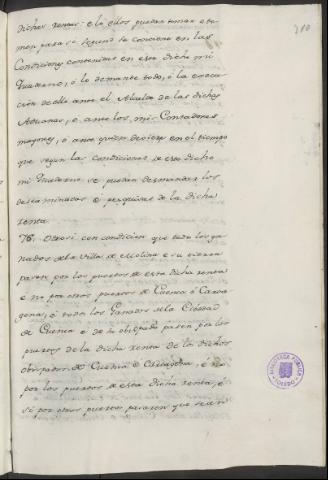 210
dichas rentas: e la ellos puedan tomar e to-
men para si segund se contiene en las
Condiciones contenidas en este dicho mi
Quaderno, ó lo demande todo, ó la execu-
cion dello ante el Alcalde de las dichas
Aduanas, o ante los mis Contadores
mayores, o ante quien deviere en el tiempo
que segun las condiciones de este dicho
mi Quaderno se puedan demandar los
descaminados e pesquisas de la dicha
renta.
76. Otrosi con condicion que todos los ga-
nados de la villa de Molina e su tierra
pasen por los puertos de esta dicha renta
e no por otros puertos de Cuenca ó Carta-
gena, é todos los Ganados de la Ciudad
de Cuenca é de su obispado pasen por los
puertos de la dicha renta de los dichos
obispados de Cuenca é Cartagena, é no
por los puertos de esta dicha renta, é
si por otros puertos pasaren que sean
BIBLIOTECA PUBLICA
TOLEDO